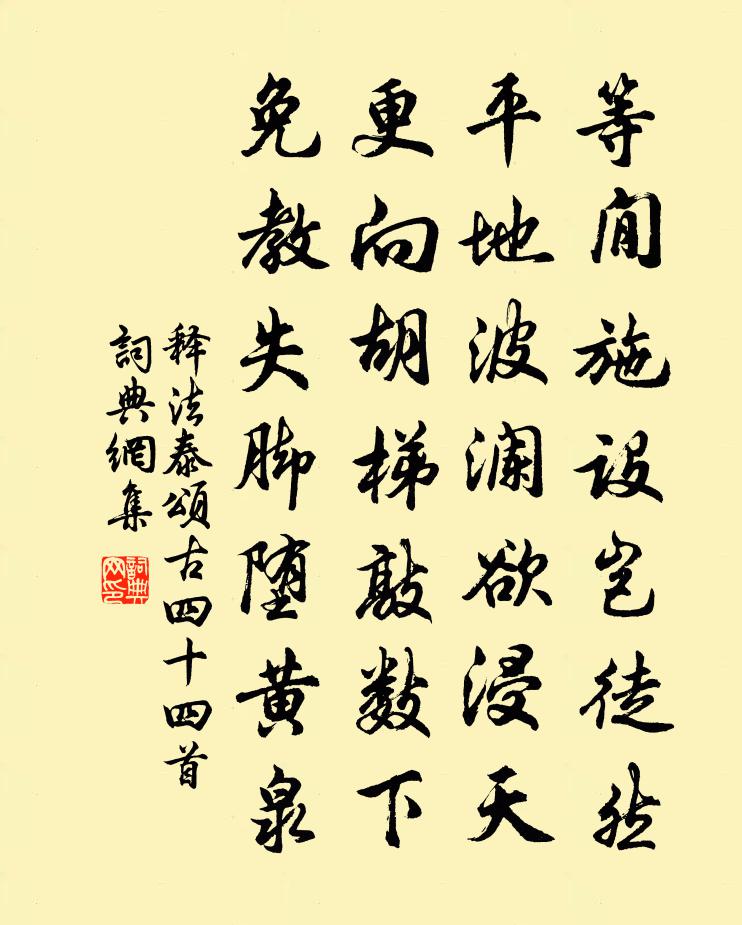 等閒施設豈徒然
平地波瀾欲浸天
更向胡梯敲數下
免教失脚墮黄泉
釋法泰頌古四十四首
詞典網集
詞典網印